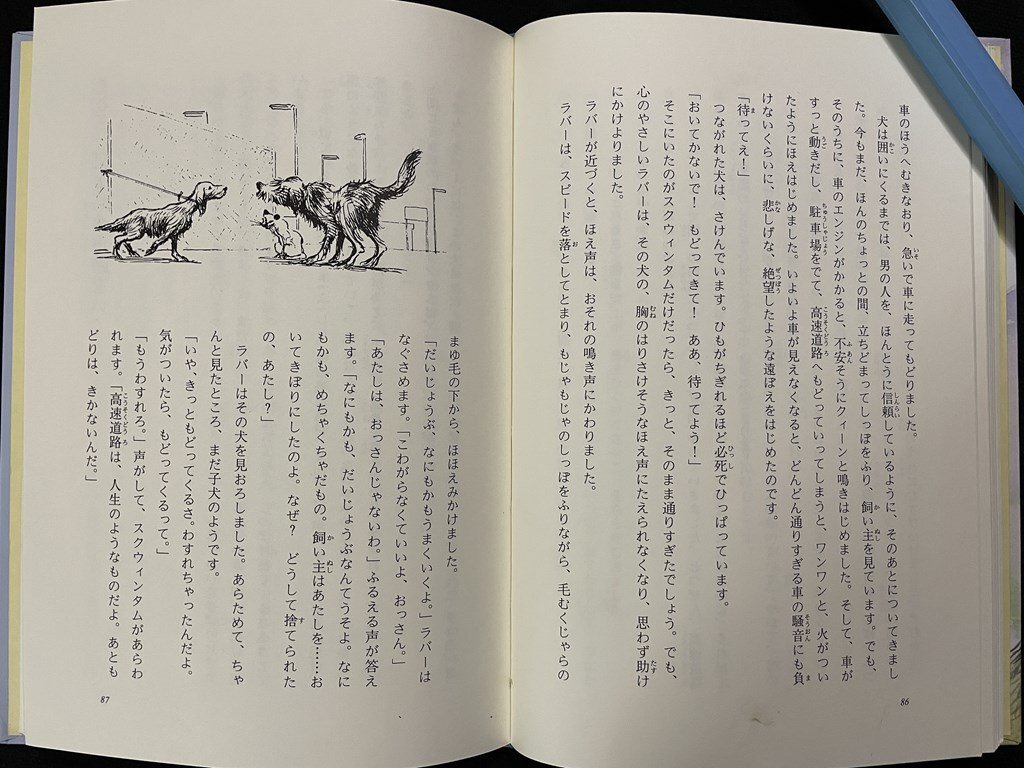 車のほうへむきなおり、急いで車に走ってもどりました。
犬は囲いにくるまでは、男の人を、ほんとうに信頼しているように、そのあとについてきまし
た。今もまだ、ほんのちょっとの間、立ちどまってしっぽをふり、飼い主を見ています。でも、
そのうちに、車のエンジンがかかると、不安そうにクィーンと鳴きはじめました。そして、車が
すっと動きだし、駐車場をでて、高速道路へもどっていってしまうと、ワンワンと、火がつい
たようにほえはじめました。いよいよ車が見えなくなると、どんどん通りすぎる車の騒音にも負
けないくらいに、悲しげな、絶望したような遠ぼえをはじめたのです。
「待ってえ！」
つながれた犬は、さけんでいます。ひもがちぎれるほど必死でひっぱっています。
「おいてかないで！　もどってきて！　ああ、待ってよう！」
そこにいたのがスクウィンタムだけだったら、きっと、そのまま通りすぎたでしょう。でも、
心のやさしいラバーは、その犬の、胸のはりさけそうなほえ声にたえられなくなり、思わず助け
にかけよりました。
ラバーが近づくと、ほえ声は、おそれの鳴き声にかわりました。
ラバーは、スピードを落としてとまり、もじゃもじゃのしっぽをふりながら、毛むくじゃらの
86
まゆ毛の下から、ほほえみかけました。
「だいじょうぶ、なにもかもうまくいくよ。」ラバーは
なぐさめます。「こわがらなくていいよ、おっさん。」
「あたしは、おっさんじゃないわ。」ふるえる声が答え
ます。「なにもかも、だいじょうぶなんてうそよ。なに
もかも、めちゃくちゃだもの。飼い主はあたしを……お
いてきぼりにしたのよ。なぜ？　どうして捨てられた
の、あたし？」
ラバーはその犬を見おろしました。あらためて、ちゃ
んと見たところ、まだ子犬のようです。
「いや、きっともどってくるさ。わすれちゃったんだよ。
気がついたら、もどってくるって。」
「もうわすれろ。」声がして、スクウィンタムがあらわ
れます。「高速道路は、人生のようなものだよ。あとも
どりは、きかないんだ。」
87